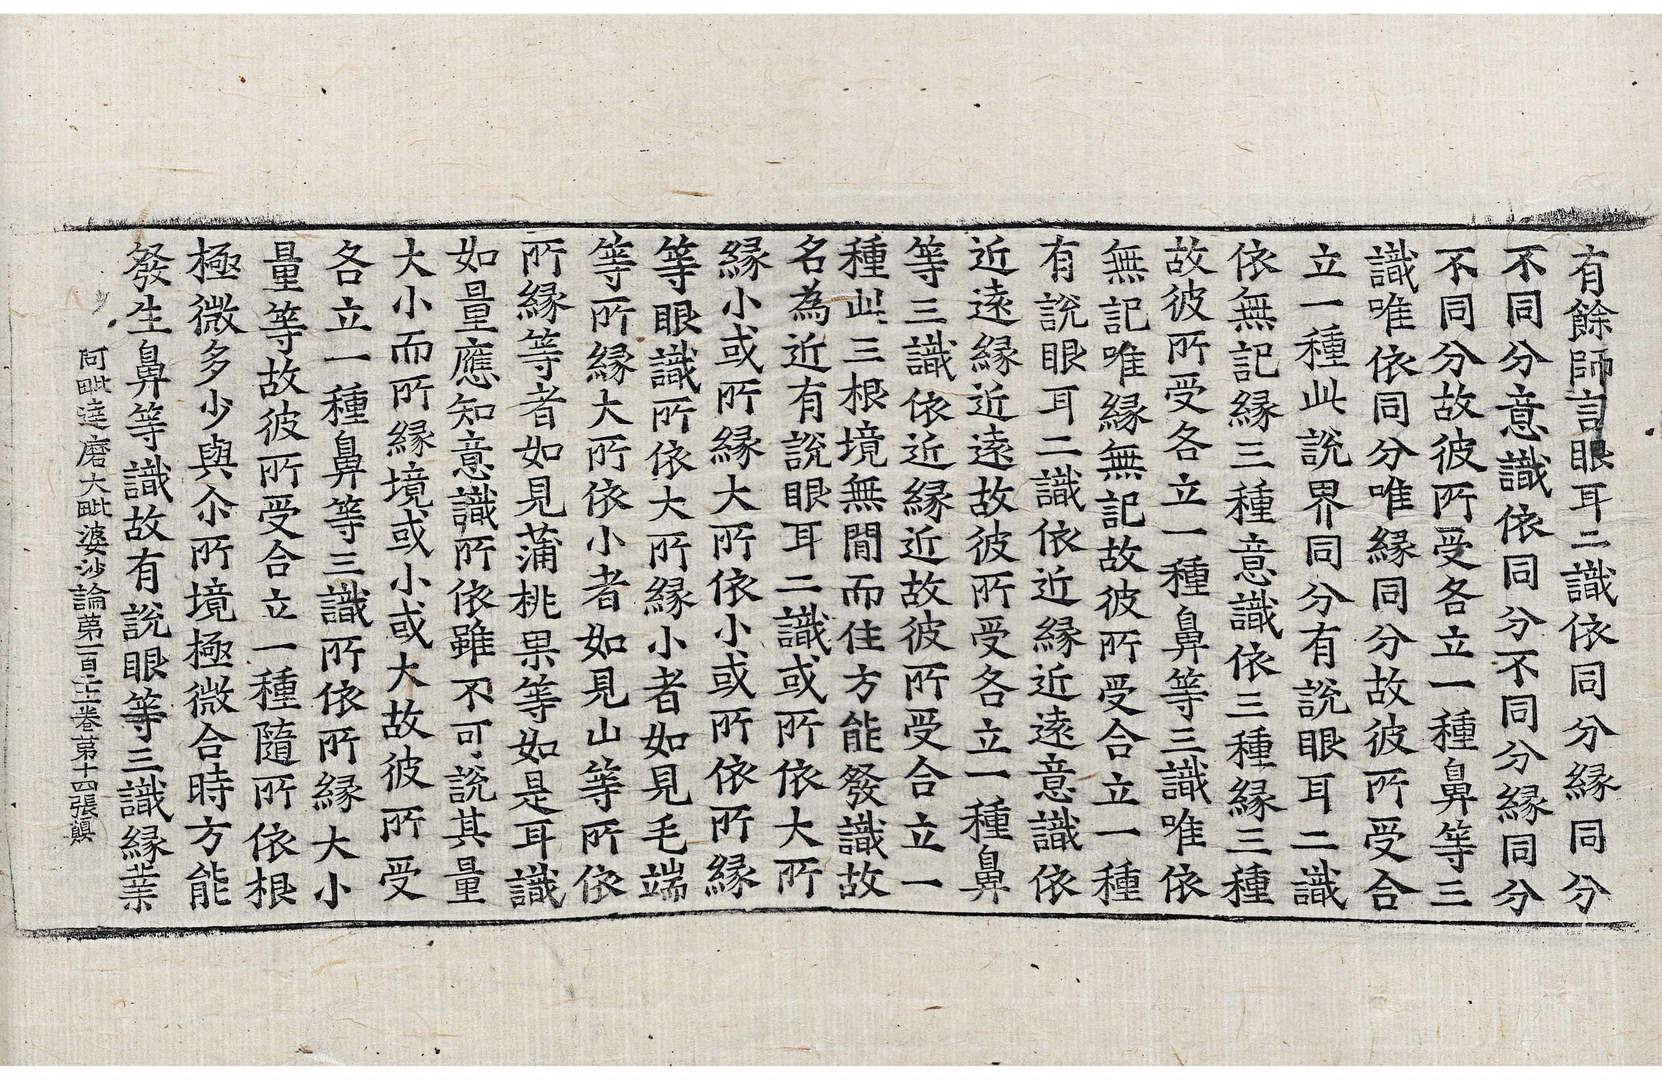 有餘師言眼耳二識依同分緣同分
不同分意識依同分不同分緣同分
不同分故彼所受各立一種鼻等三
識唯依同分唯緣同分故彼所受合
立一種此說界同分有說眼耳二識
依無記緣三種意識依三種緣三種
故彼所受各立一種鼻等三識唯依
無記唯緣無記故彼所受合立一種
有說眼耳二識依近緣近遠意識依
近遠緣近遠故彼所受各立一種鼻
等三識依近緣近故彼所受合立一
種此三根境無間而住方能發識故
名為近有說眼耳二識或所依大所
緣小或所緣大所依小或所依所緣
等眼識所依大所緣小者如見毛端
等所緣大所依小者如見山等所依
所緣等者如見蒲桃果等如是耳識
如量應知意識所依雖不可說其量
大小而所緣境或小或大故彼所受
各立一種鼻等三識所依所緣大小
量等故彼所受合立一種隨所依根
極微多少與尒所境極微合時方能
發生鼻等識故有說眼等三識緣業
阿毗達磨大毗婆沙論第一百卷第十四張